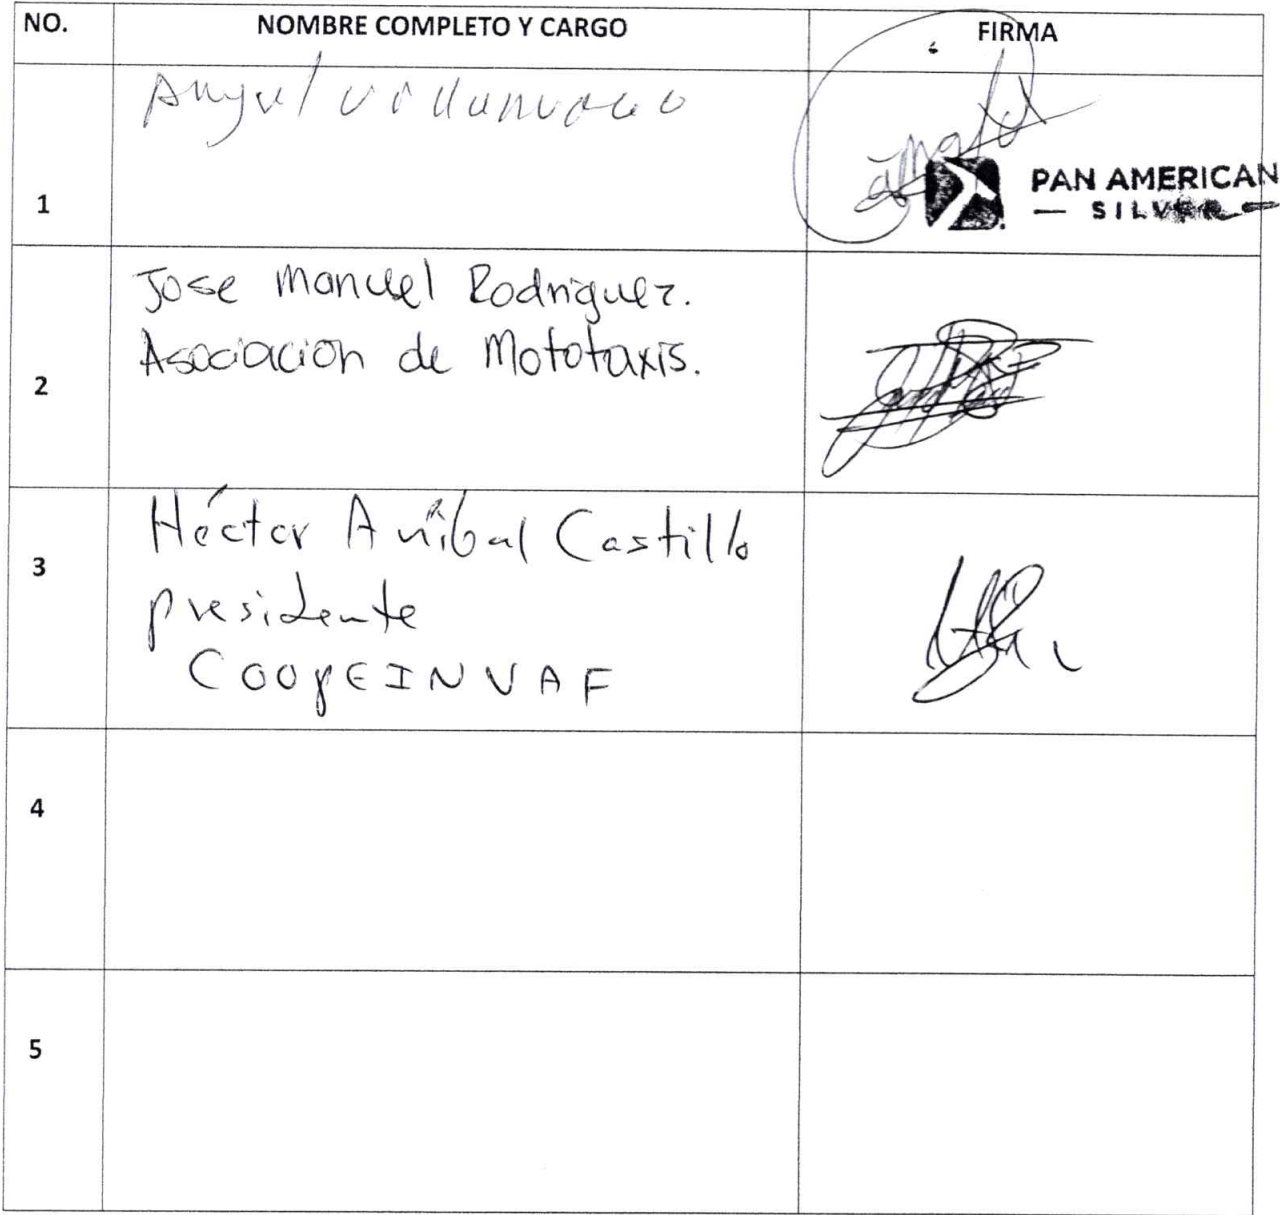 NO. NOMBRE COMPLETO Y CARGO FIRMA
Angel
1
PAN AMERICAN
— SILVER —
Jose Manuel Rodriguez.
Asociacion de Mototaxis.
2
Héctor Aníbal Castillo
presidente
COOPEINVAF
3
4
5